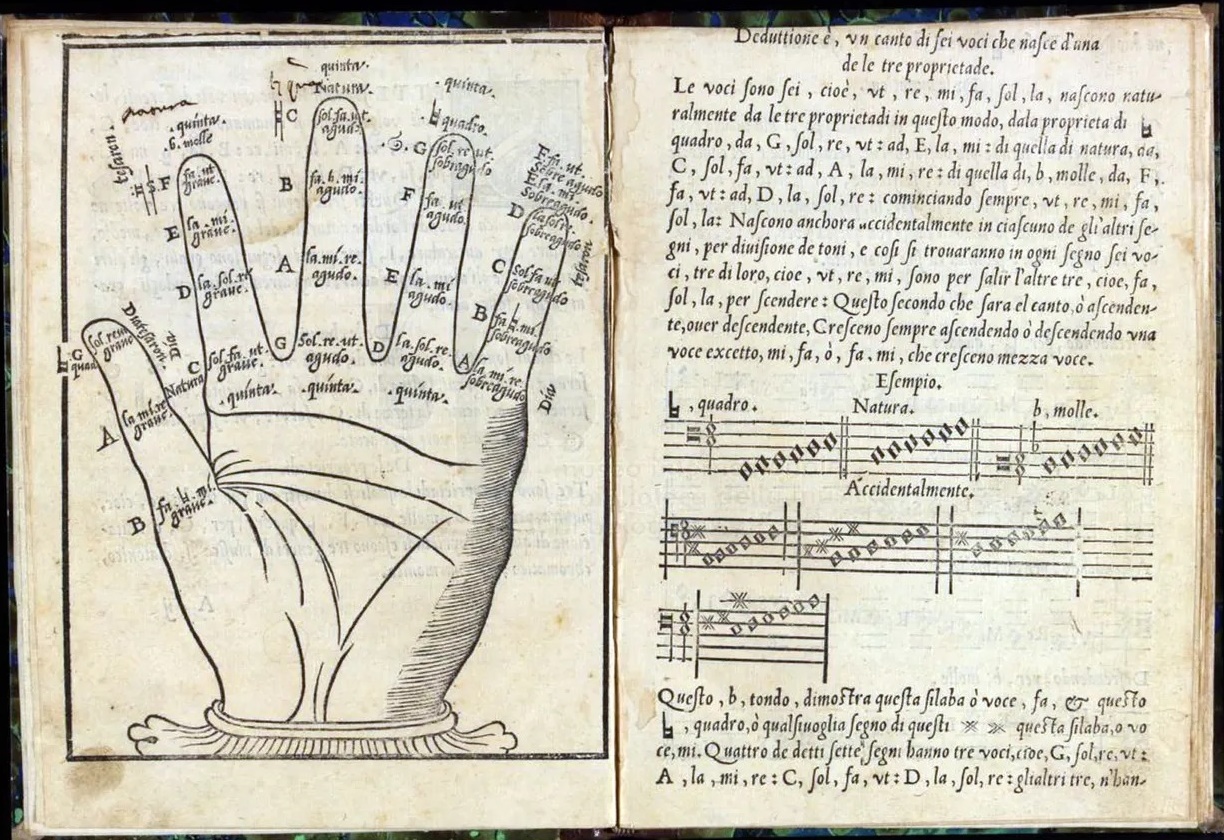 quinta.
Natura.
C
sol. fa. ut.
agudo.
B
fa. b. mi.
agudo.
A
la. mi. re.
agudo.
G
Sol. re. ut.
agudo.
quinta.
quinta.
♮ quadro.
G
sol. re. ut.
sobragudo
F
fa. ut
agudo.
E
la. mi
agudo.
D
la. sol. re.
agudo.
quinta.
F. fa. ut.
sobre agudo
E. la. mi.
Sobreagudo.
D
la. sol. re.
sobreagudo
C
Sol. fa. ut
sobreagudo.
B
fa. ♮. mi.
sobreagudo
A
la. mi. re.
sobreagudo
Dia
tesaron
quinta.
b. molle
F
fa. ut
grave.
E
la. mi.
grave.
D
la. sol. re
grave.
C
sol. fa. ut.
grave.
Natura
quinta.
Diatesaron.
Dia
tesaron
♮ G
quad
sol. re ut
grave
A
la. mi. re
grave.
B
fa. ♮. mi
grave.
Deduttione è, vn canto di ſei voci che naſce d'una
de le tre proprietade.
Le voci ſono ſei, cioè, vt, re, mi, fa, ſol, la, naſcono natu-
ralmente da le tre proprietadi in queſto modo, dala proprieta di ♮
quadro, da, G, ſol, re, vt: ad, E, la, mi: di quella di natura, da,
C, ſol, fa, vt: ad, A, la, mi, re: di quella di, b, molle, da, F,
fa, vt: ad, D, la, ſol, re: cominciando ſempre, vt, re, mi, fa,
ſol, la: Naſcono anchora accidentalmente in ciaſcuno de gl'altri ſe-
gni, per diuiſione de toni, e coſi ſi trouaranno in ogni ſegno ſei vo-
ci, tre di loro, cioe, vt, re, mi, ſono per ſalir l'altre tre, cioe, fa,
ſol, la, per ſcendere: Queſto ſecondo che ſara el canto, ò aſcenden-
te, ouer deſcendente, Creſceno ſempre aſcendendo ò deſcendendo vna
voce excetto, mi, fa, ò, fa, mi, che creſceno mezza voce.
Eſempio.
♮, quadro. Natura. b, molle.
Accidentalmente.
Queſto, b, tondo, dimoſtra queſta ſilaba ò voce, fa, & queſto
♮, quadro, ò qualſiuoglia ſegno di queſti queſta ſilaba, o vo
ce, mi. Quattro de detti ſette ſegni hanno tre voci, cioe, G, ſol, re, vt:
A, la, mi, re: C, ſol, fa, vt: D, la, ſol, re: glialtri tre, n'han-